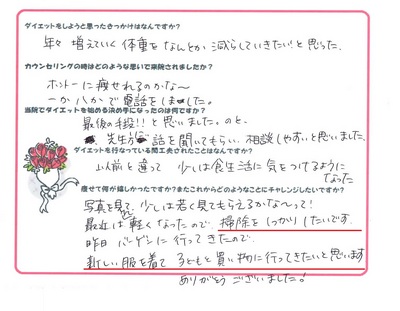 ダイエットをしようと思ったきっかけはなんですか?
年々 増えていく 体重を なんとか 減らしていきたい!と 思った.
カウンセリングの時はどのような思いで来院されましたか?
ホントーに 痩せれるのかな〜
一か八かで 電話をしました。
当院でダイエットを始める決め手になったのは何ですか?
最後の手段!! と思いました。のと、
先生が 話を聞いてもらい、相談しやすいと思いました
ダイエットを行なっている間工夫されたことはなんですか?
以前と違って 少しは食生活に 気をつけるように
なった
痩せて何が嬉しかったですか?またこれからどのようなことにチャレンジしたいですか?
写真を見て、少しは若く見てもらえるかな〜って!
最近は 軽くなったので、掃除をしっかりしたいです.
昨日 バーゲンに行ってきたので、
新しい服を着て 子どもと買い物に行ってきたいと思います
ありがとうございました!